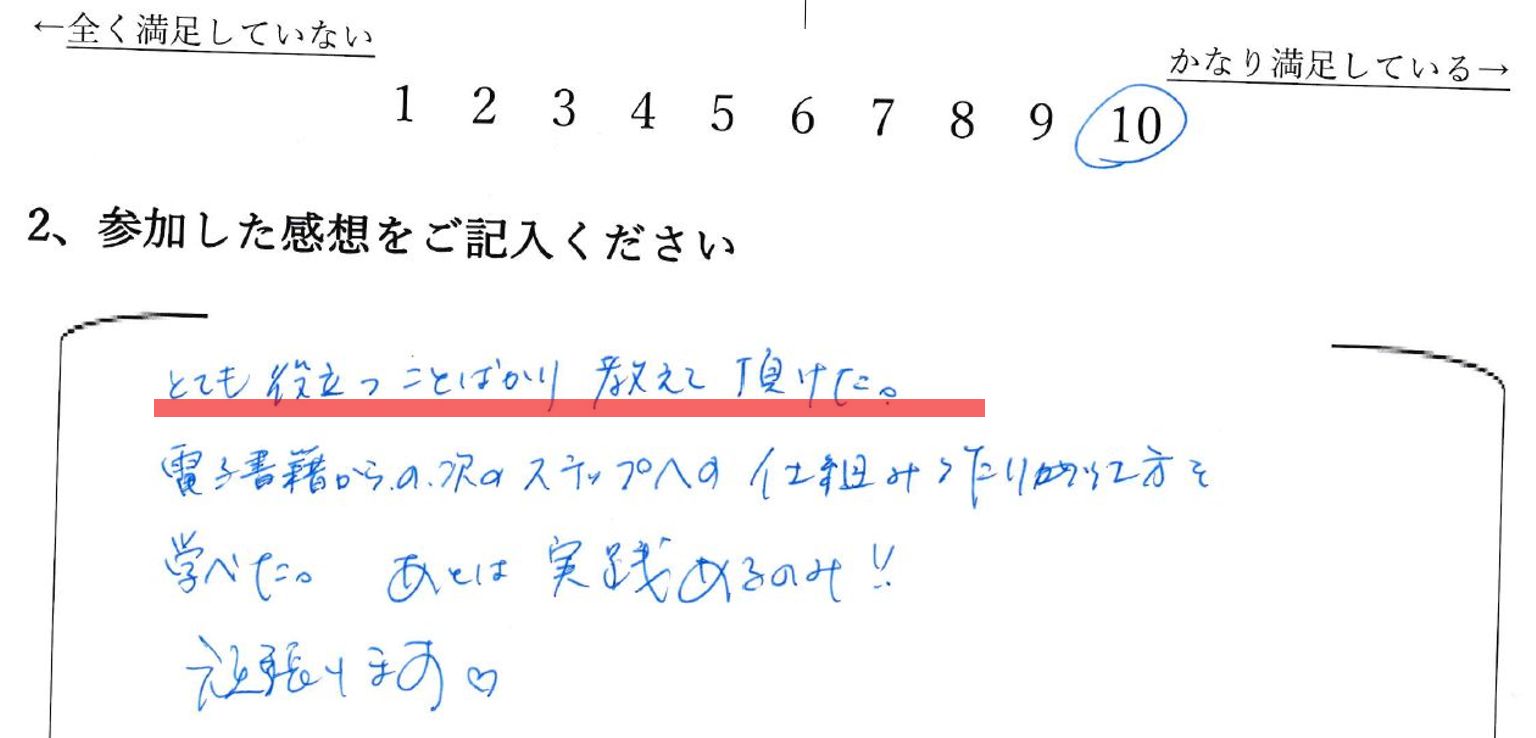 ←全く満足していない
かなり満足している→
1 2 3 4 5 6 7 8 9 10
2、参加した感想をご記入ください
とても役立つことばかり教えて頂けた。
電子書籍からの次のステップへの仕組み方を
学べた。 あとは実践あるのみ!!
頑張ります♡